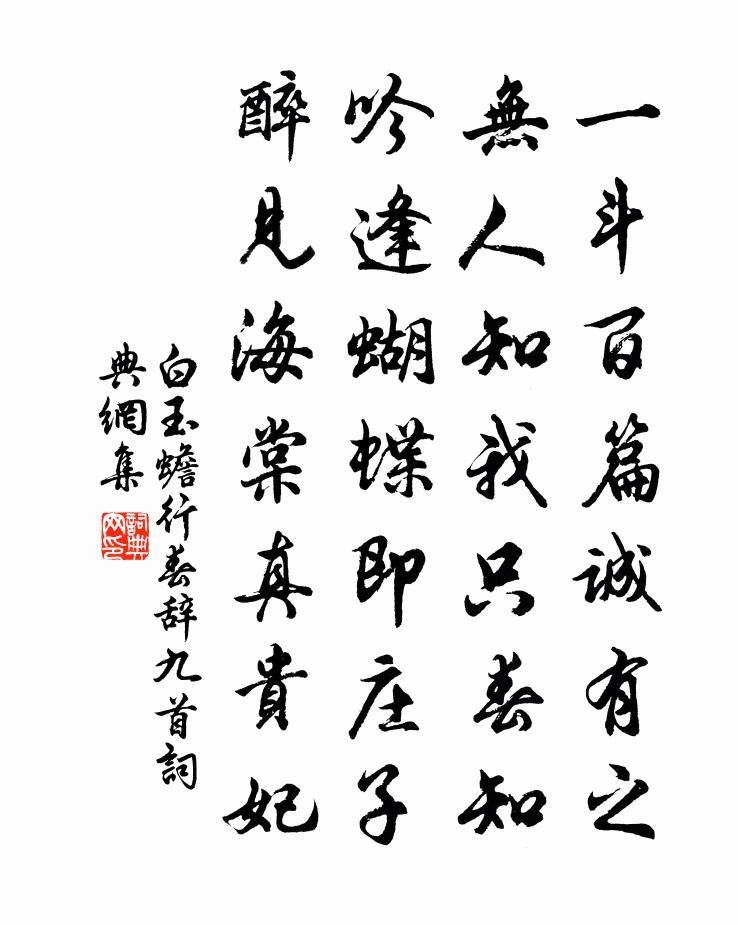 一斗百篇誠有之
無人知我只春知
吟逢蝴蝶即庄子
醉見海棠真貴妃
白玉蟾行春辞九首詞
典網集
詞典
网印